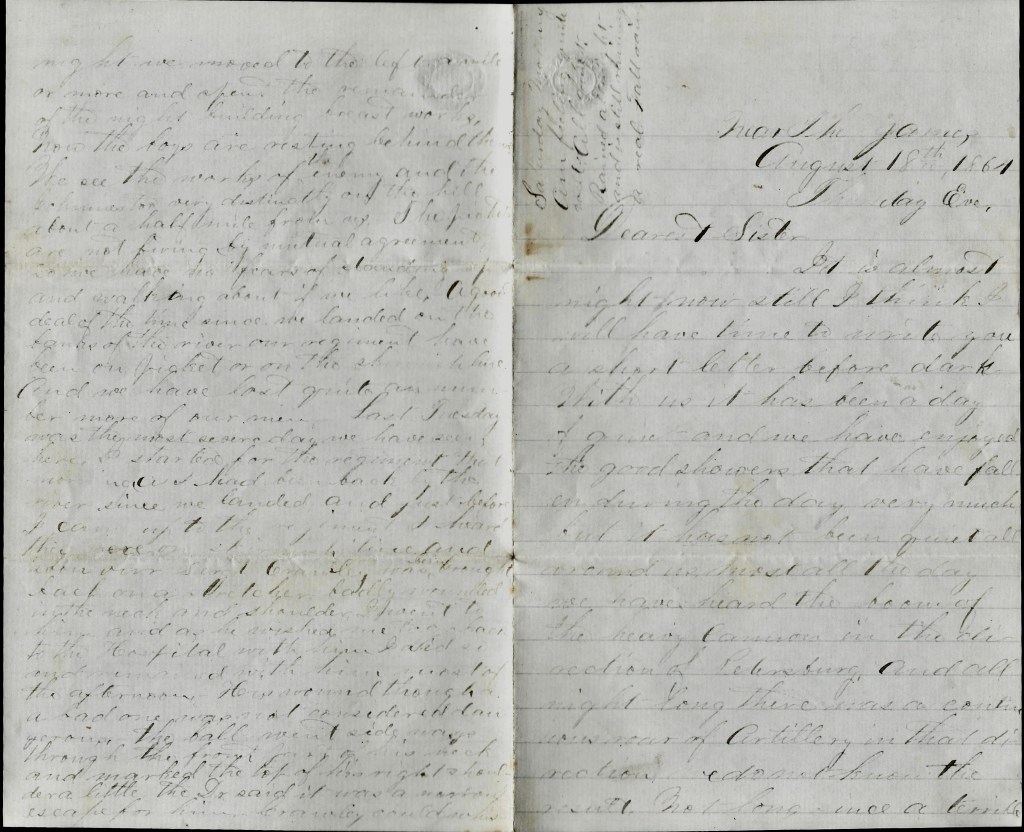 Near The James,
August, 18th, 1864
day Eve,
Dearest Sister
It is almost
night now still I think I
will have time to write you
a short letter before dark.
With us it has been a day
of quiet and we have enjoyed
the good showers that have fall
en during the day very much
but it has not been quiet all
around us, most all the day
we have heard the boom of
the heavy Cannon in the di
rection of Petersburg, and all
night long there was a contin
uous roar of Artillery in that di
rection. I do not know the
result. Not long since a terrible
Saturday Morning
Am
Rained
and is still
night we moved to the left a mile
or more and spent the remainder
of the night building breast works,
Now the boys are resting behind them
We see the works of enemy and the
very distinctly on the hill
about a half mile from us. The pickets
are not firing by mutual agreement,
so we have no fears of
and walking about if we like. A good
deal of the time since we landed on the
banks of the river our regiment have
been on picket or on the skirmish line
And we have lost quite a num
ber more of our men. Last Tuesday
was the most severe day we have seen
here. I started for the regiment that
morning as I had been back by the
river since we landed and just before
I came up to the regiment I heard
they were on
upon our was brought
back on a stretcher, badly wounded
in the neck and shoulder. I went to
him and as he wished me to go back
to the Hospital with him I did so
and remained with him most of
the afternoon. His wound though
a bad one was not considered dan
gerous, the ball went side ways
through the front part of his neck
and marked the top of his right shoul
der a little, the Dr said it was a narrow
escape for him. Crawley could